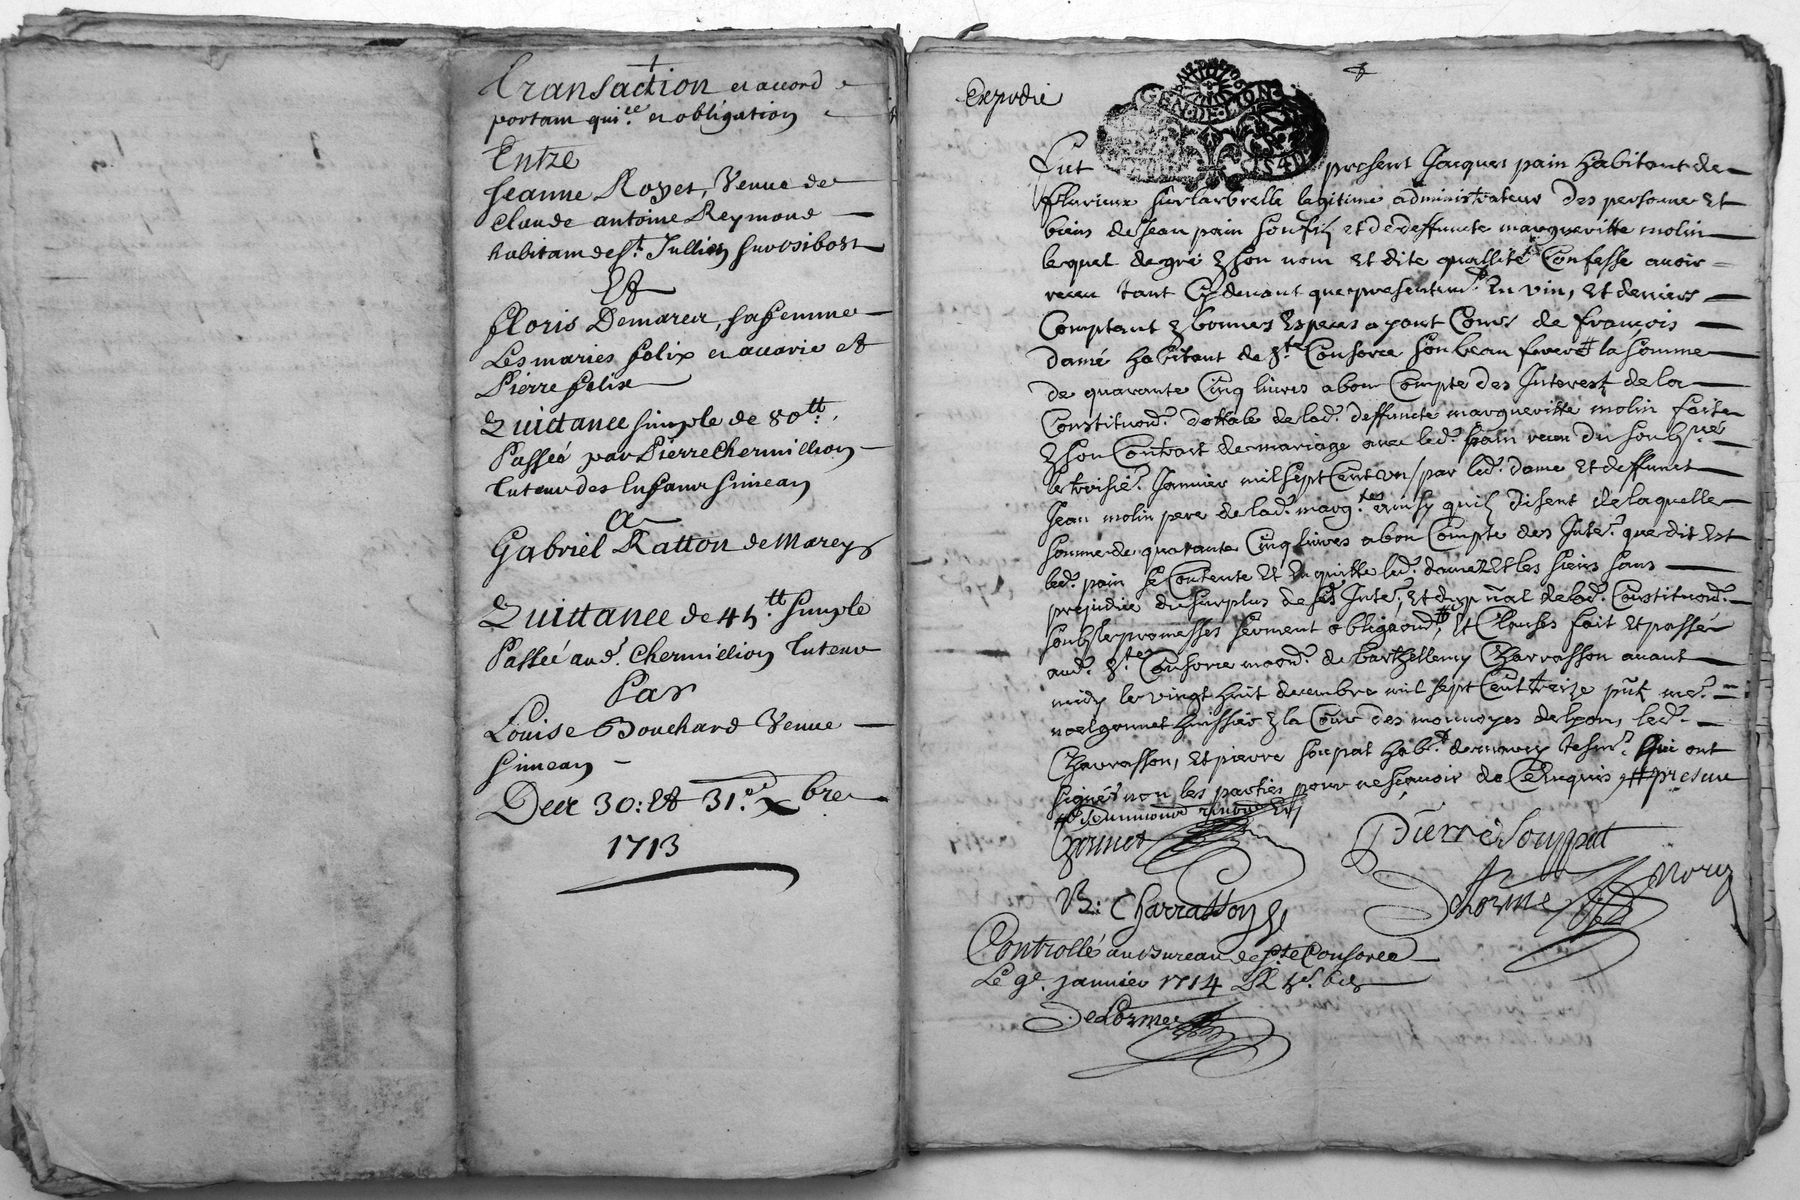 Transaction et accord
portant qui.ce et obligation
Entre
Jeanne Royer, Veuue de
Claude antoine Reymond
habitant de st. Jullien sur
Et
floris Demareu, sa femme
Les mariés felix et et
Pierre felix
Quittance simple de 80tt.
Passée par Pierre Chermillion
Tuteur des Enfans Simean
A
Gabriel Ratton de Mareys
Quittance de 45.tt Simple
Passée aud. Chermillion Tuteur
Par
Louise Bouchard Veuue
Simean
Deu 30: Et 31.e Xbre
1713
Expedié
GEN. DE LYON
Fut present Jacques pain habitant de
flurieux sur larbrelle legitime administrateur des personne Et
biens de Jean pain son filz et de deffuncte margueritte molin
lequel de gré & son nom Et dite quallité Confesse auoir
receu tant Cy deuant que presentem.t En vin, Et deniers
Comptant & bonnes Especes ayant Cours de françois
damé habitant de Ste Consorce son beau frere la somme
de quarante Cinq liures a bon Compte des Interest de la
Constituon. dottale de lad. deffuncte margueritte molin faite
& son Contract de mariage auec led. pain receu du soubz.ne
le troisie. Januier mil sept Cent un / par led. damé Et deffunct
Jean molin pere de lad. marg.tte ainsy quilz disent de laquelle
somme de quarante Cinq liures a bon Compte des Inte. que dit Est
led. pain se Contente Et En quitte led. damé Et les siens sans
prejudice du surplus de ses Inte. Et du p nal de lad. Constituon.
soubz les promesses serment obligaon. Et Clauses fait Et passé
aud. Ste Consorce maon. de Barthellemy Charrasson auant
midy le vingt huit decembre mil sept Cent treize pnt me.
noel gonnet huissier & la Cour des monnoyes de lyon, led.
Charrasson, Et pierre soupat hab.t de tesm. qui ont
signé non les parties pour ne sçauoir de Ce Enquis
Gonnet
Pierre Souppat
B: Charrasson
Delorme Nore
Controllé au Bureau de Ste Consorce
Le 9e. januier 1714
DeLorme